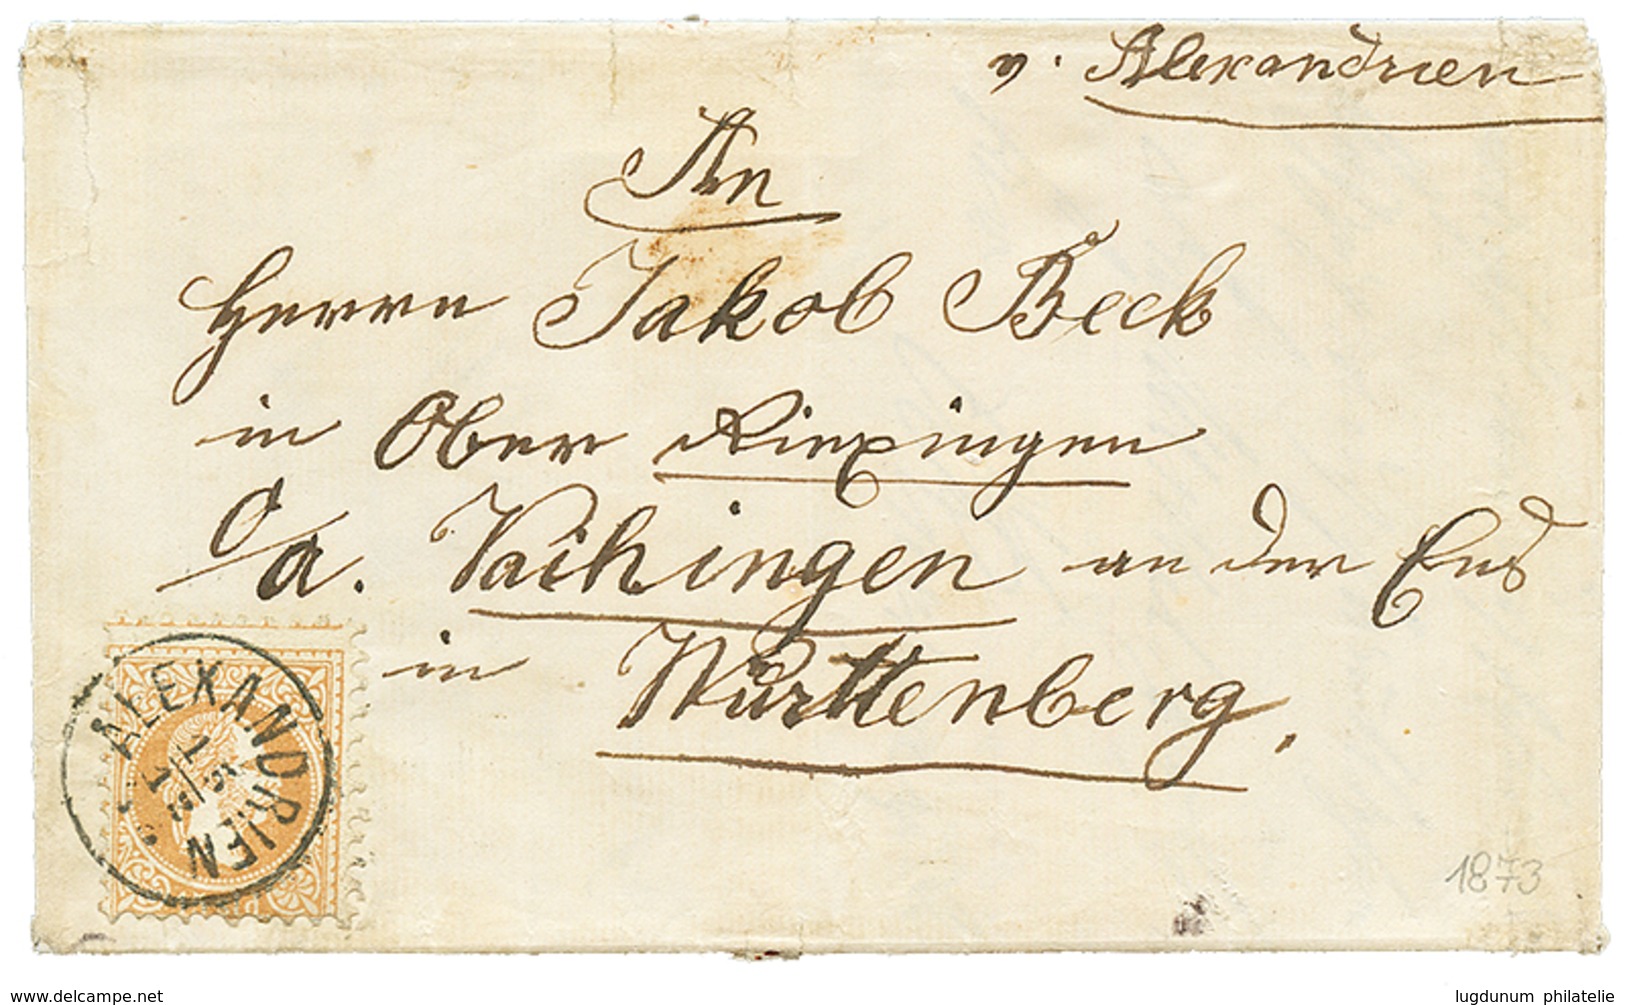 v. Alexandrien
An
Herrn Jakob Beck
in Ober Riexingen
O/a. Vaihingen an der Enß
in Württenberg.
ALEXANDRIEN
1873
delcampe.net
lugdunum philatelie